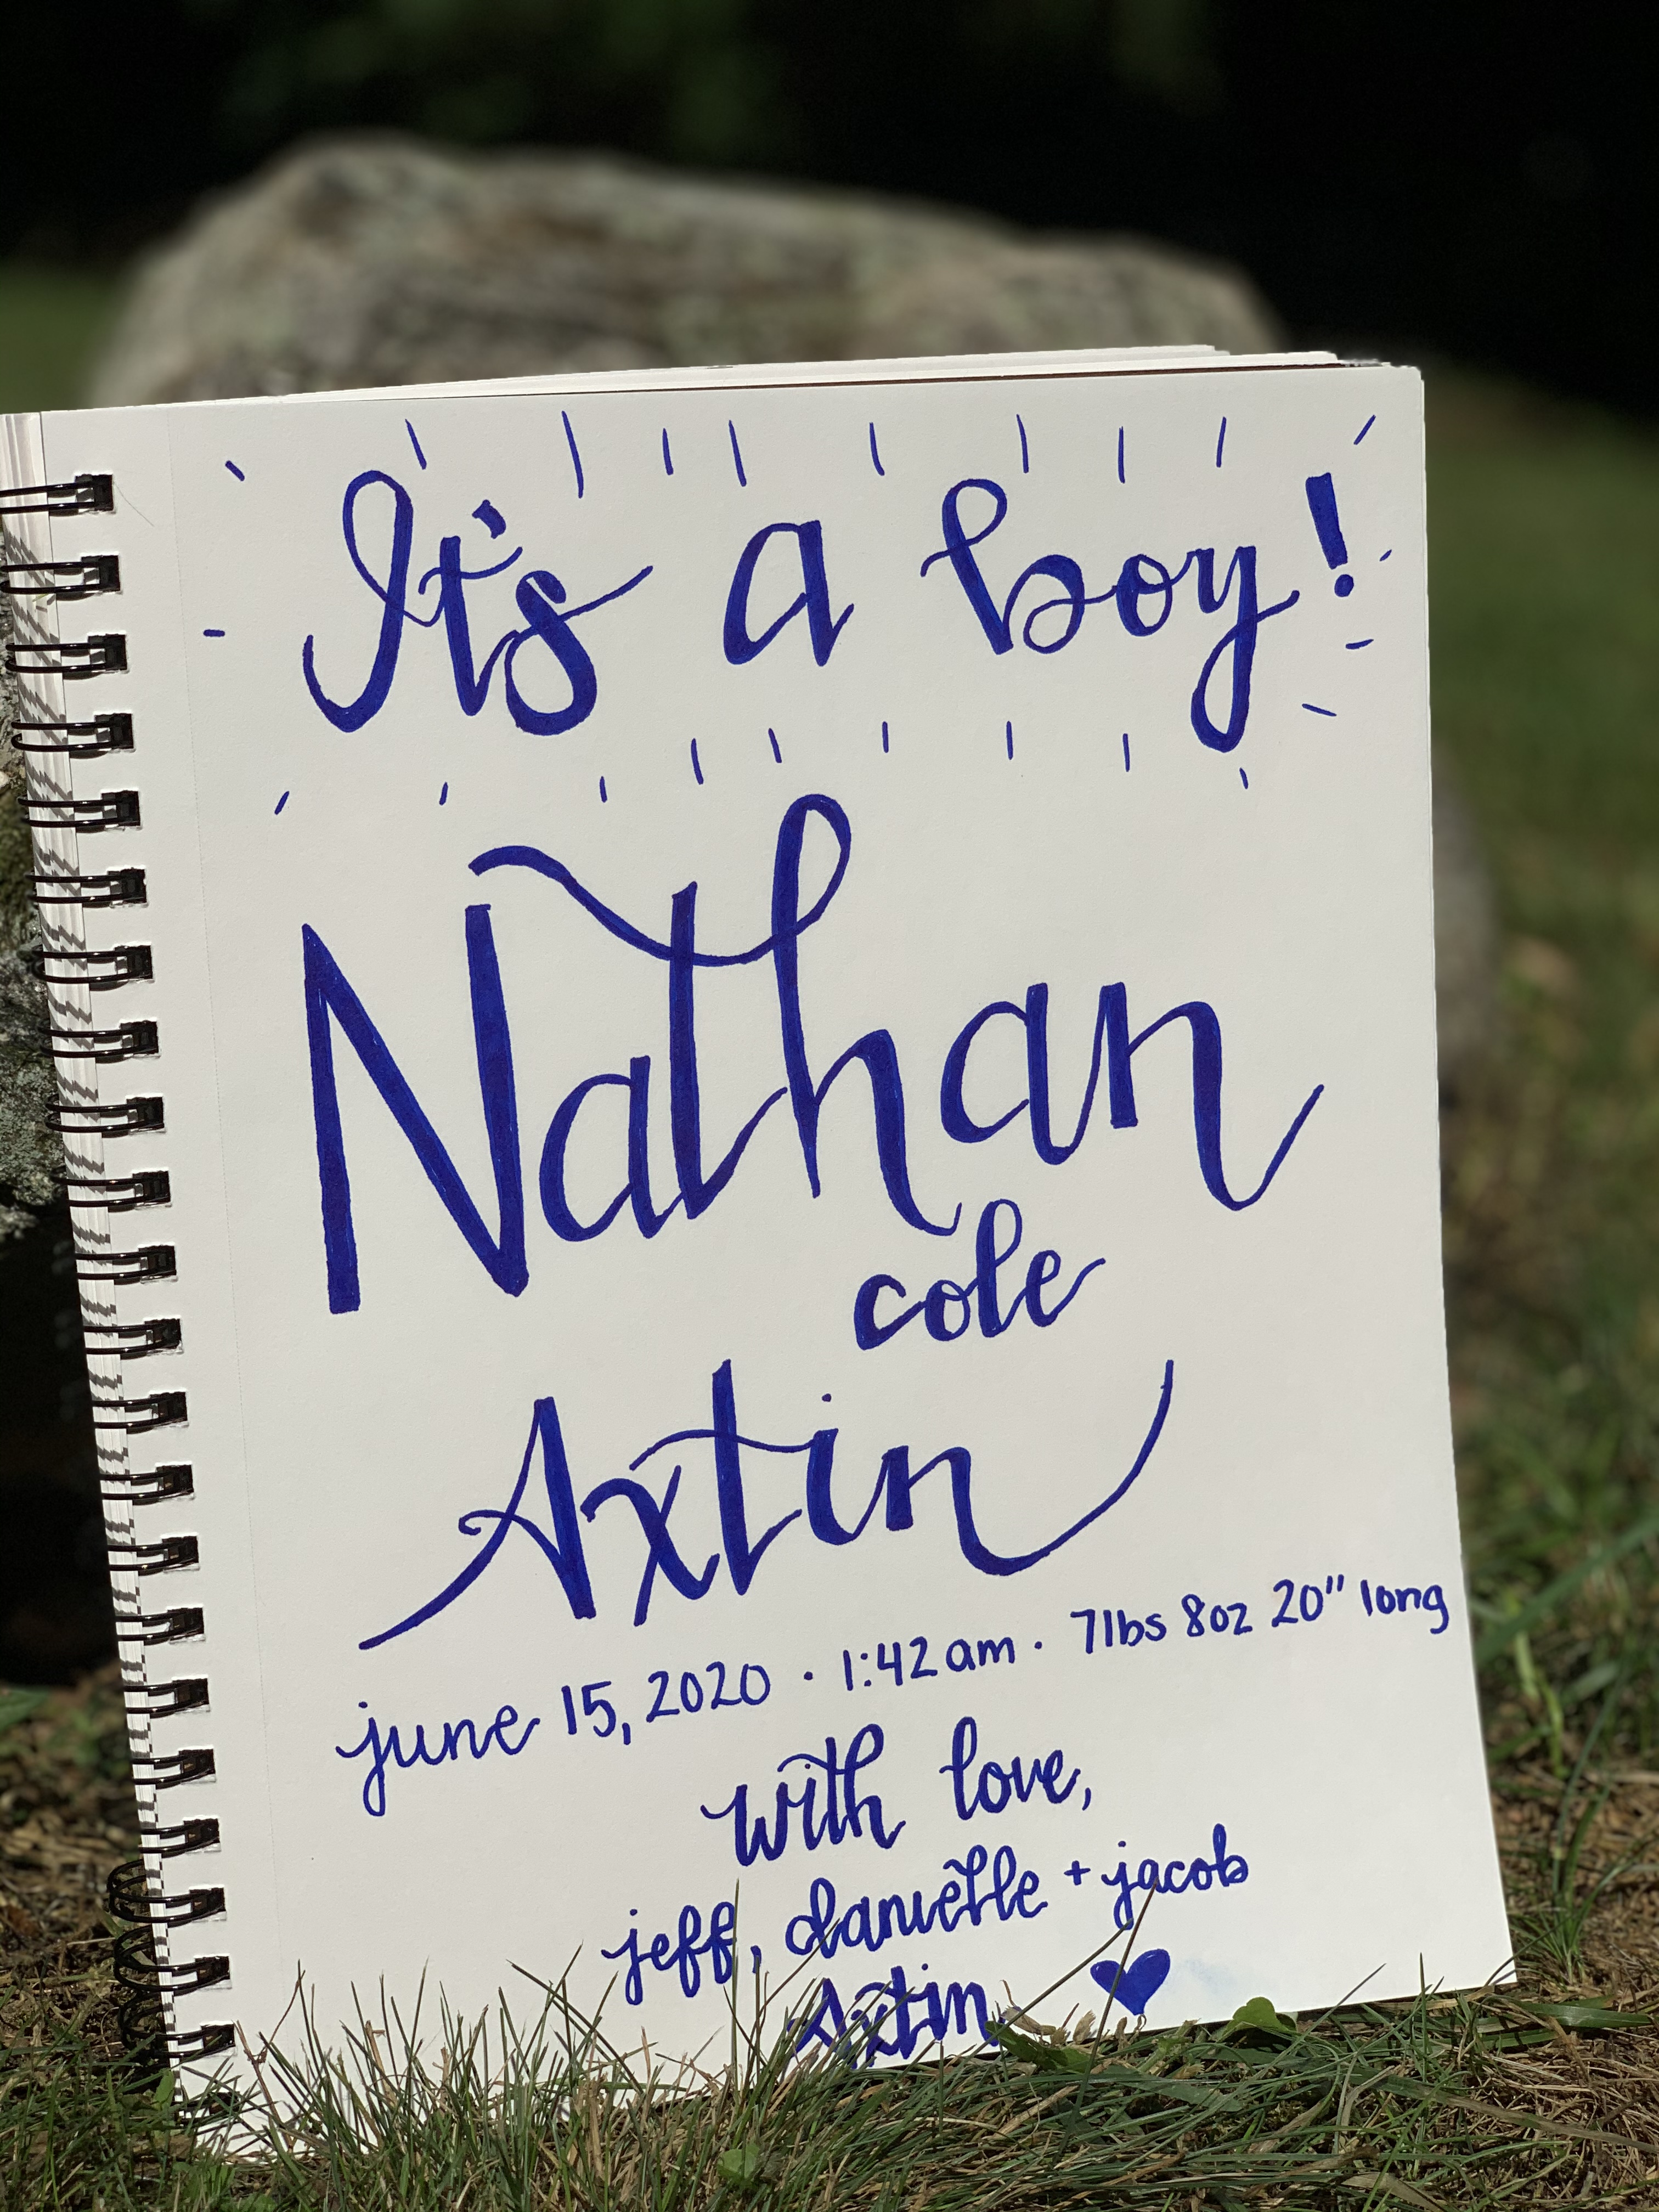 It's a boy!
Nathan
cole
Axtin
june 15, 2020 · 1:42 am · 7lbs 8oz 20" long
with love,
jeff, danielle + jacob
Axtin